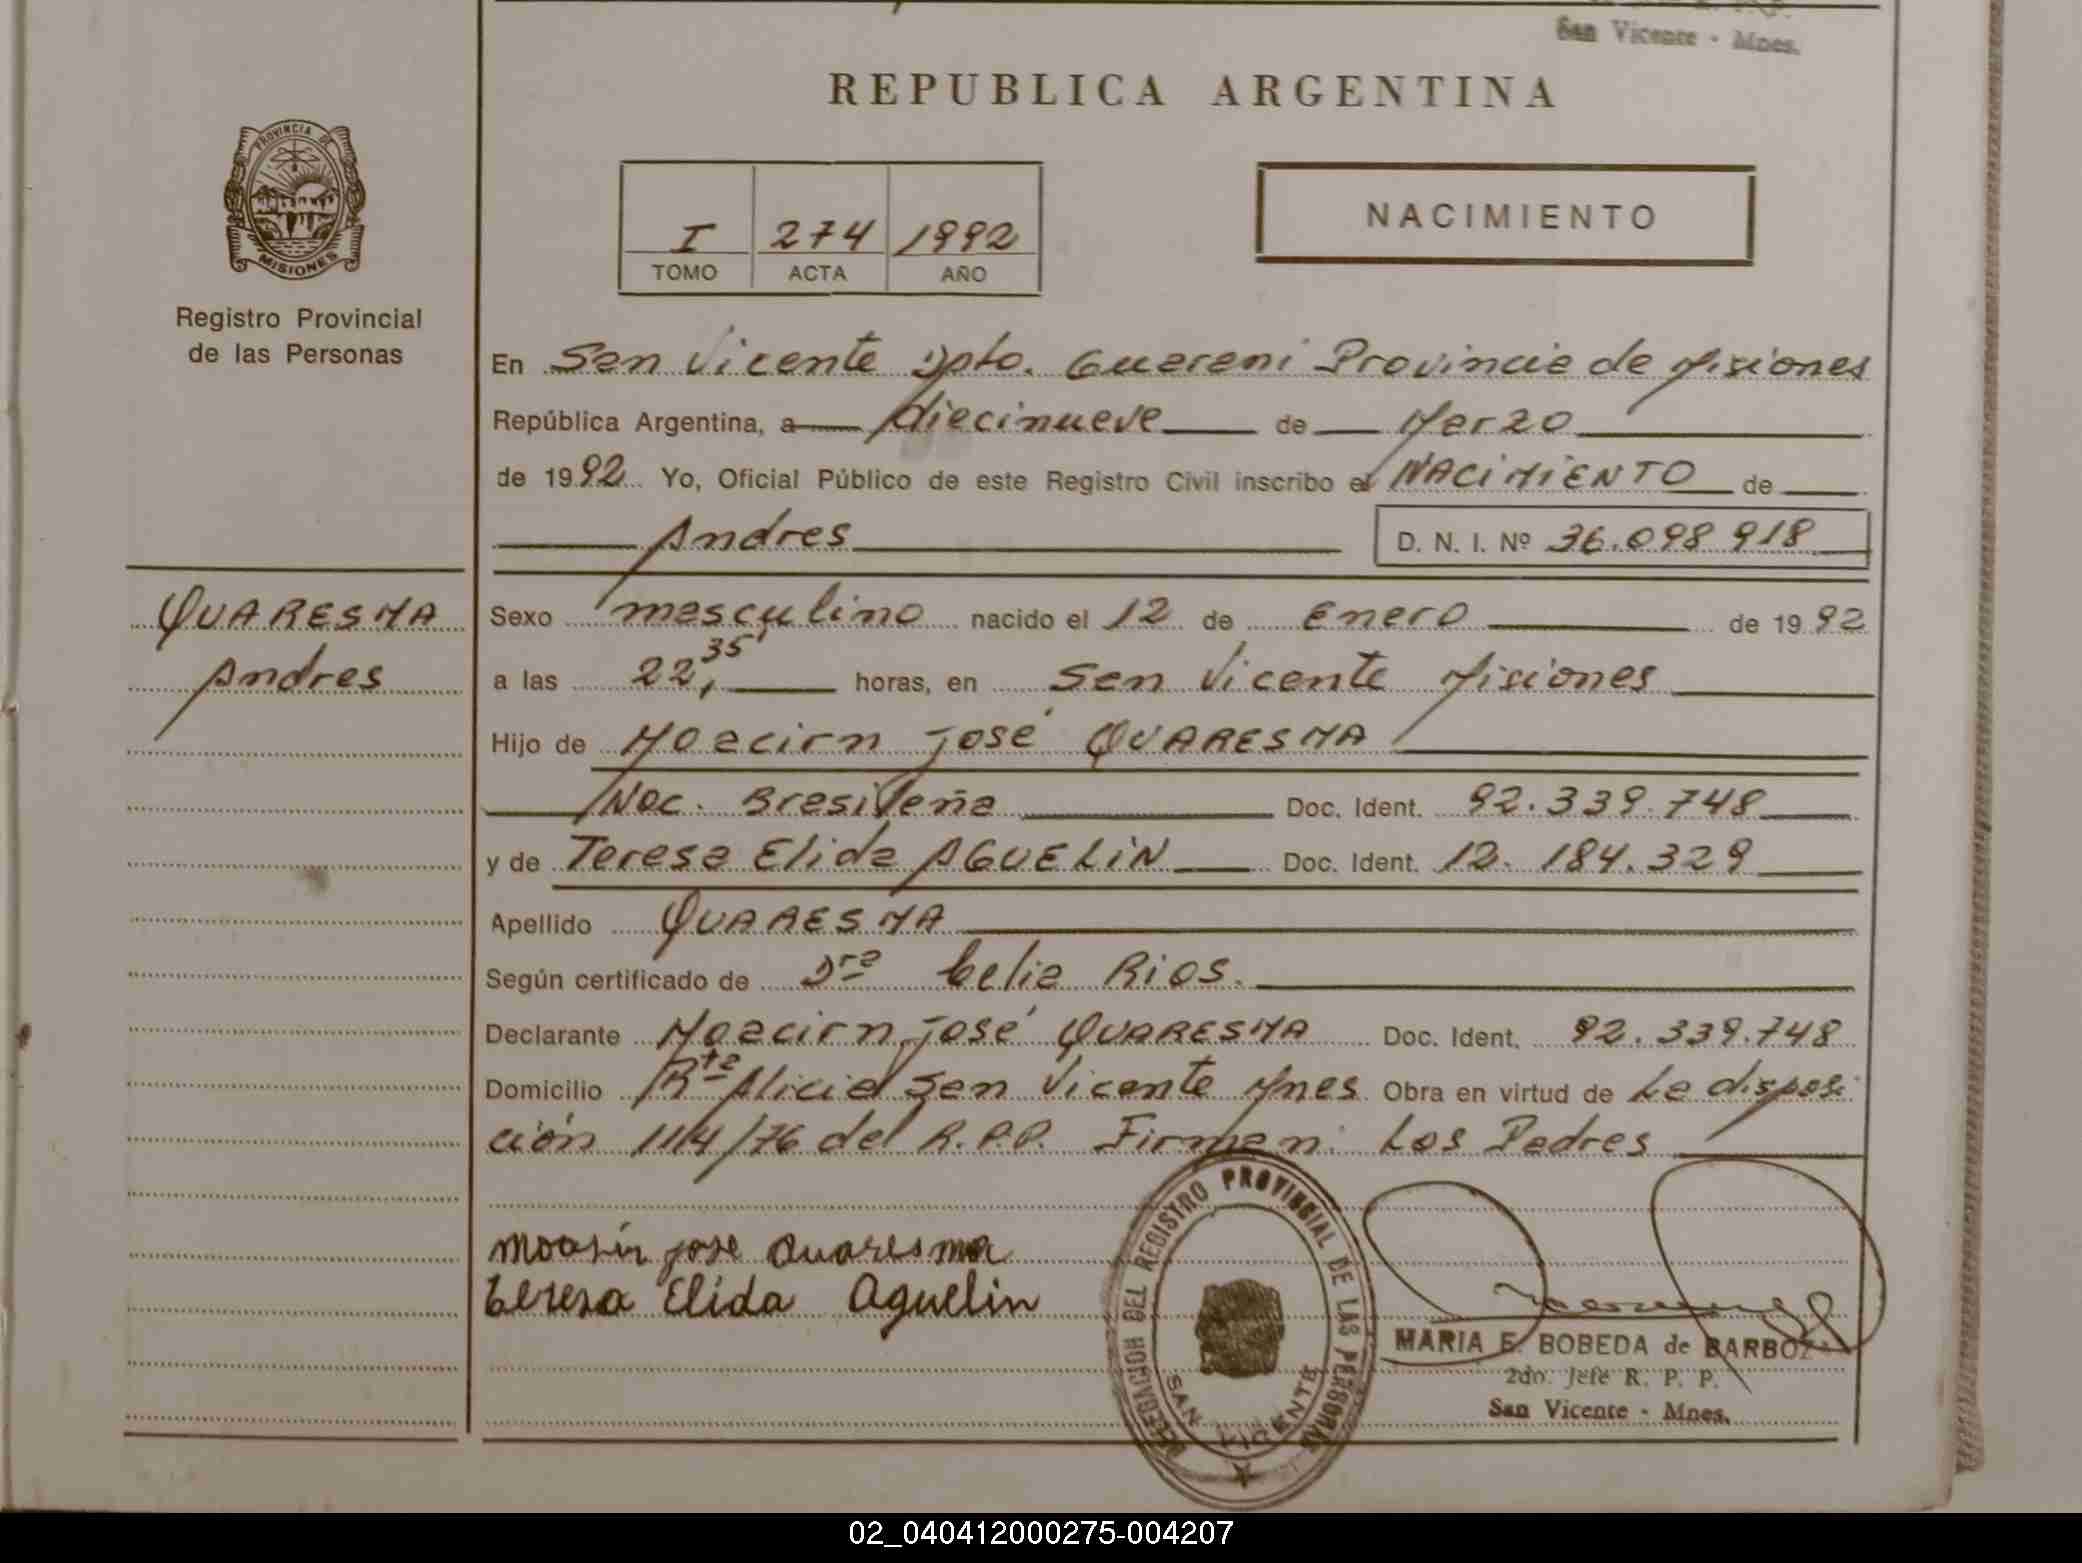 San Vicente - Mnes.
REPUBLICA ARGENTINA
PROVINCIA DE
MISIONES
I 274 1992
TOMO ACTA AÑO
NACIMIENTO
Registro Provincial
de las Personas
En San Vicente Dpto. Guarani Provincia de Misiones
República Argentina, a diecinueve de Marzo
de 1992 Yo, Oficial Público de este Registro Civil inscribo el NACIMIENTO de
Andres D. N. I. Nº 36.098 918
QUARESMA
Andres
Sexo masculino nacido el 12 de Enero de 1992
a las 22,35' horas, en San Vicente Misiones
Hijo de Moacirn José QUARESMA
Nac. Brasileña Doc. Ident. 92.339.748
y de Teresa Elida AGUELIN Doc. Ident. 12.184.329
Apellido QUARESMA
Según certificado de Dra Celia Rios.
Declarante Moacirn José QUARESMA Doc. Ident. 92.339.748
Domicilio Rta Alicia San Vicente Mnes Obra en virtud de La disposi
ción 114/76 del R.P.P. Firman: Los Padres
Moasir jose Quaresma
teresa Elida Aguelin
DELEGACION DEL REGISTRO PROVINCIAL DE LAS PERSONAS
SAN VICENTE
MARIA E. BOBEDA de BARBOZA
2do. Jefe R. P. P.
San Vicente - Mnes.
02_040412000275-004207